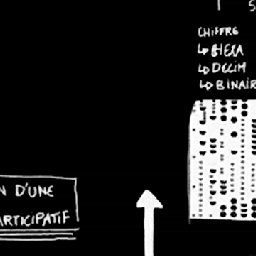 CHIFFRE
↳ HEXA
↳ DECIM
↳ BINAIR
N D'UNE
ARTICIPATIF